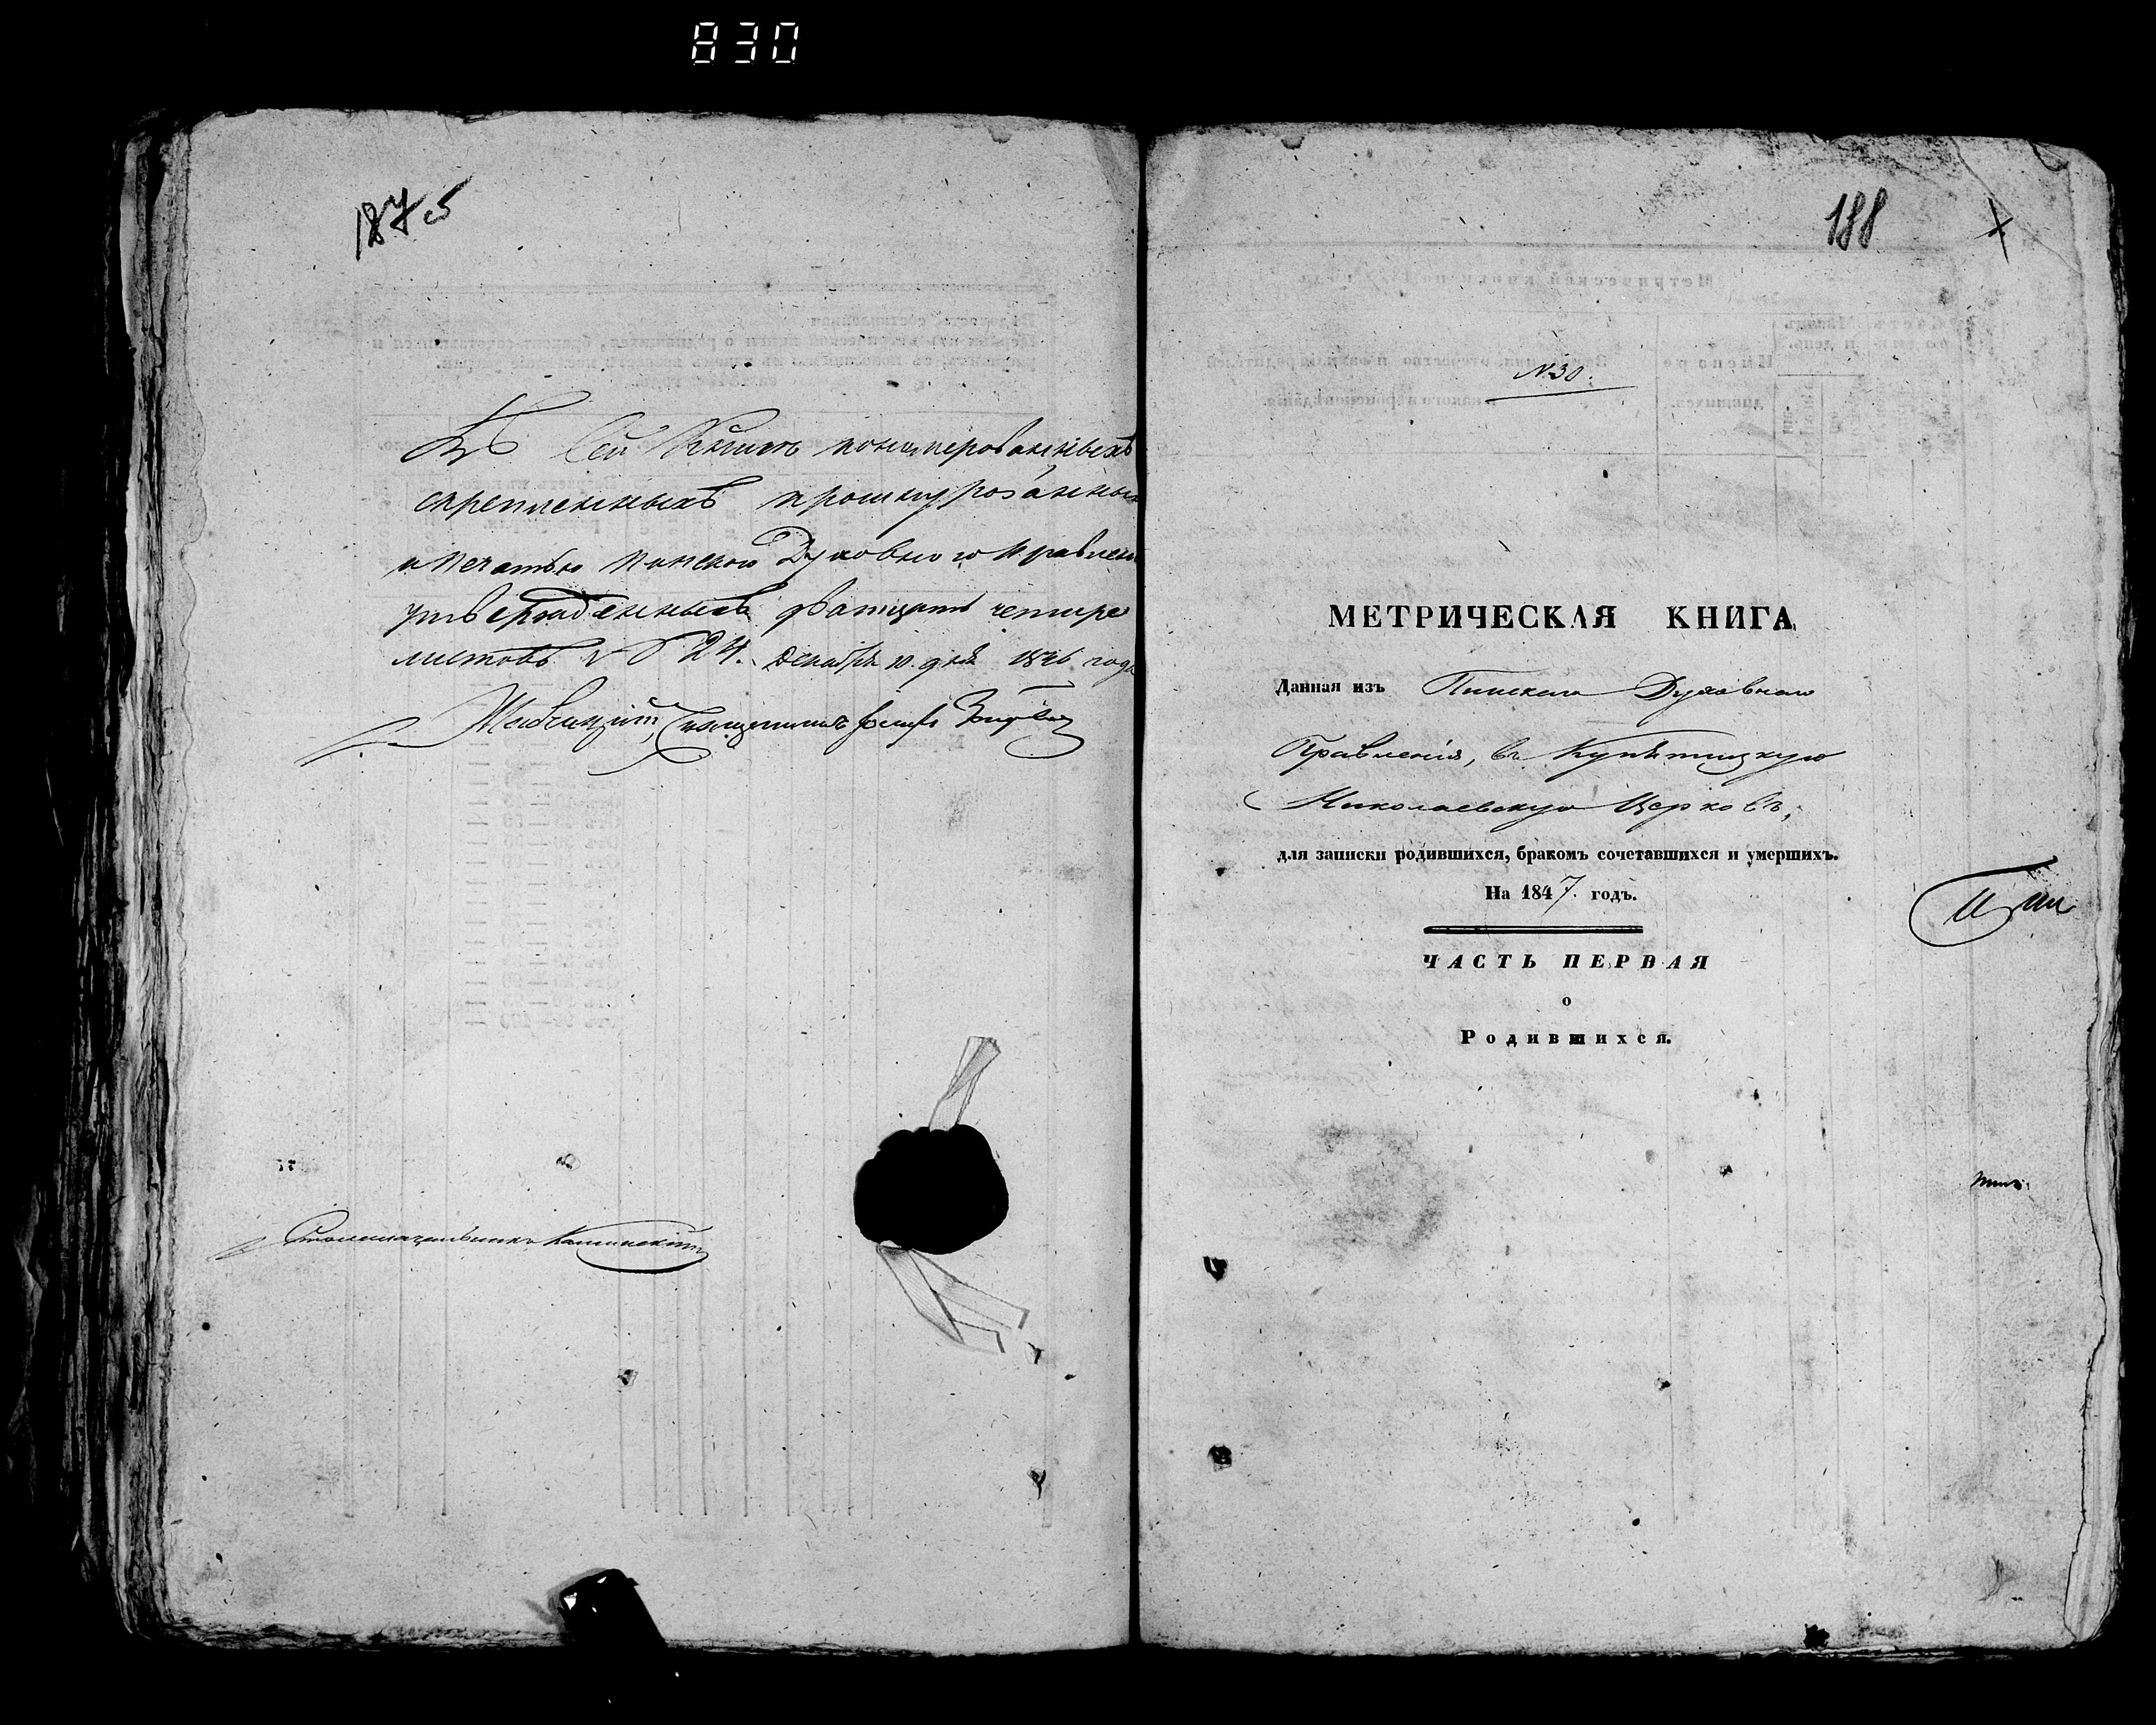 830
187об
Въ Сей Книгѣ пономерованныхъ
скрепленныхъ прошнурованных
и печатью Пинского Духовного Правлен
утвержденныхъ дватцать четире
листовъ № 24. Декабря 10. дня 1846 года
Священникъ
Столоначальникъ
188
№ 30.
МЕТРИЧЕСКАЯ КНИГА
Данная изъ Пинскаго Духовнаго
Правленія, въ Купятицкую
Николаевскую Церковь,
для записки родившихся, бракомъ сочетавшихся и умершихъ.
На 1847 годъ.
ЧАСТЬ ПЕРВАЯ
о
Родившихся.